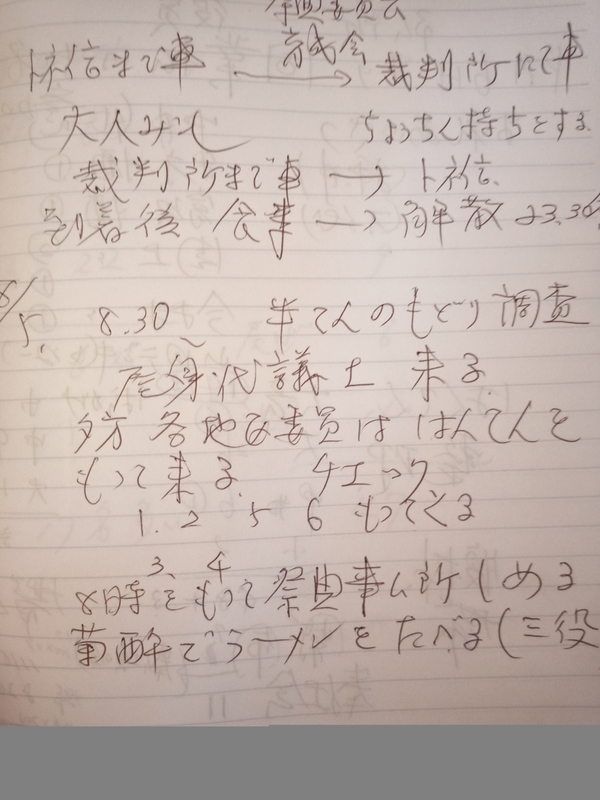 祭典委員会
ト祢信まで車 → 裁判所にて車
大人みこし ちょうちん持ちをする
裁判所まで車 → ト祢信
到着後 食事 → 解散 23.30分
8/5. 8.30〜 半てんのもどり調査
尾身代議士 来る.
夕方 各地区委員は はんてんを
もって来る. チエック
1. 2 5 6 もってくる
3、4
8時をもって祭典事ム所しめる
菊酔でラーメンをたべる(三役